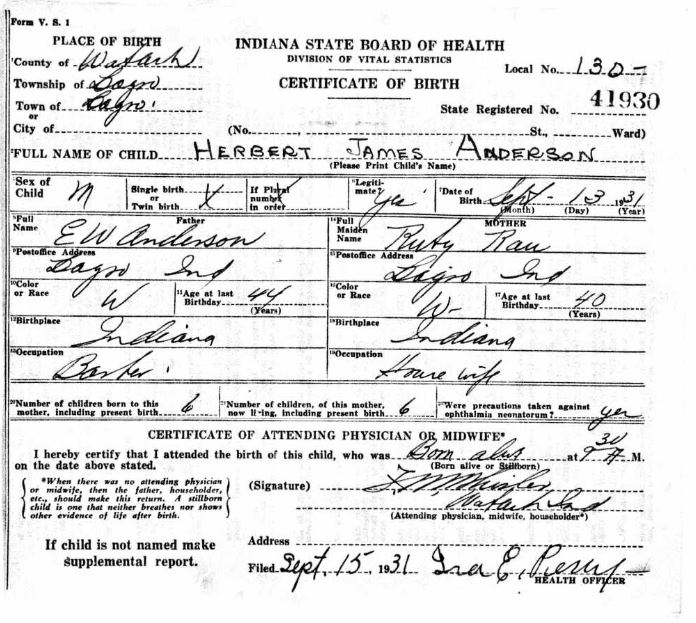 Form V. S. 1
PLACE OF BIRTH
INDIANA STATE BOARD OF HEALTH
DIVISION OF VITAL STATISTICS
CERTIFICATE OF BIRTH
County of Wabash
Local No. 130-
Township of Lagro
Town of Lagro
or
City of
State Registered No. 41930
(No. St., Ward)
FULL NAME OF CHILD HERBERT JAMES ANDERSON
(Please Print Child's Name)
Sex of Child M
Single birth or Twin birth X
If Plural number in order
Legitimate? Yes
Date of Birth Sept - 13 1931
(Month) (Day) (Year)
Father
Full Name E W Anderson
MOTHER
Full Maiden Name Ruby Rau
Postoffice Address Lagro Ind
Postoffice Address Lagro Ind
Color or Race W
Age at last Birthday 44 (Years)
Color or Race W-
Age at last Birthday 40 (Years)
Birthplace Indiana
Birthplace Indiana
Occupation Barber
Occupation House wife
Number of children born to this mother, including present birth 6
Number of children, of this mother, now living, including present birth 6
Were precautions taken against ophthalmia neonatorum? yes
CERTIFICATE OF ATTENDING PHYSICIAN OR MIDWIFE*
I hereby certify that I attended the birth of this child, who was Born alive at 9 30 A M.
on the date above stated. (Born alive or Stillborn)
*When there was no attending physician
or midwife, then the father, householder,
etc., should make this return. A stillborn
child is one that neither breathes nor shows
other evidence of life after birth.
(Signature)
Wabash Ind
(Attending physician, midwife, householder*)
If child is not named make
supplemental report.
Address
Filed Sept. 15, 1931 Ira E. Perry
HEALTH OFFICER